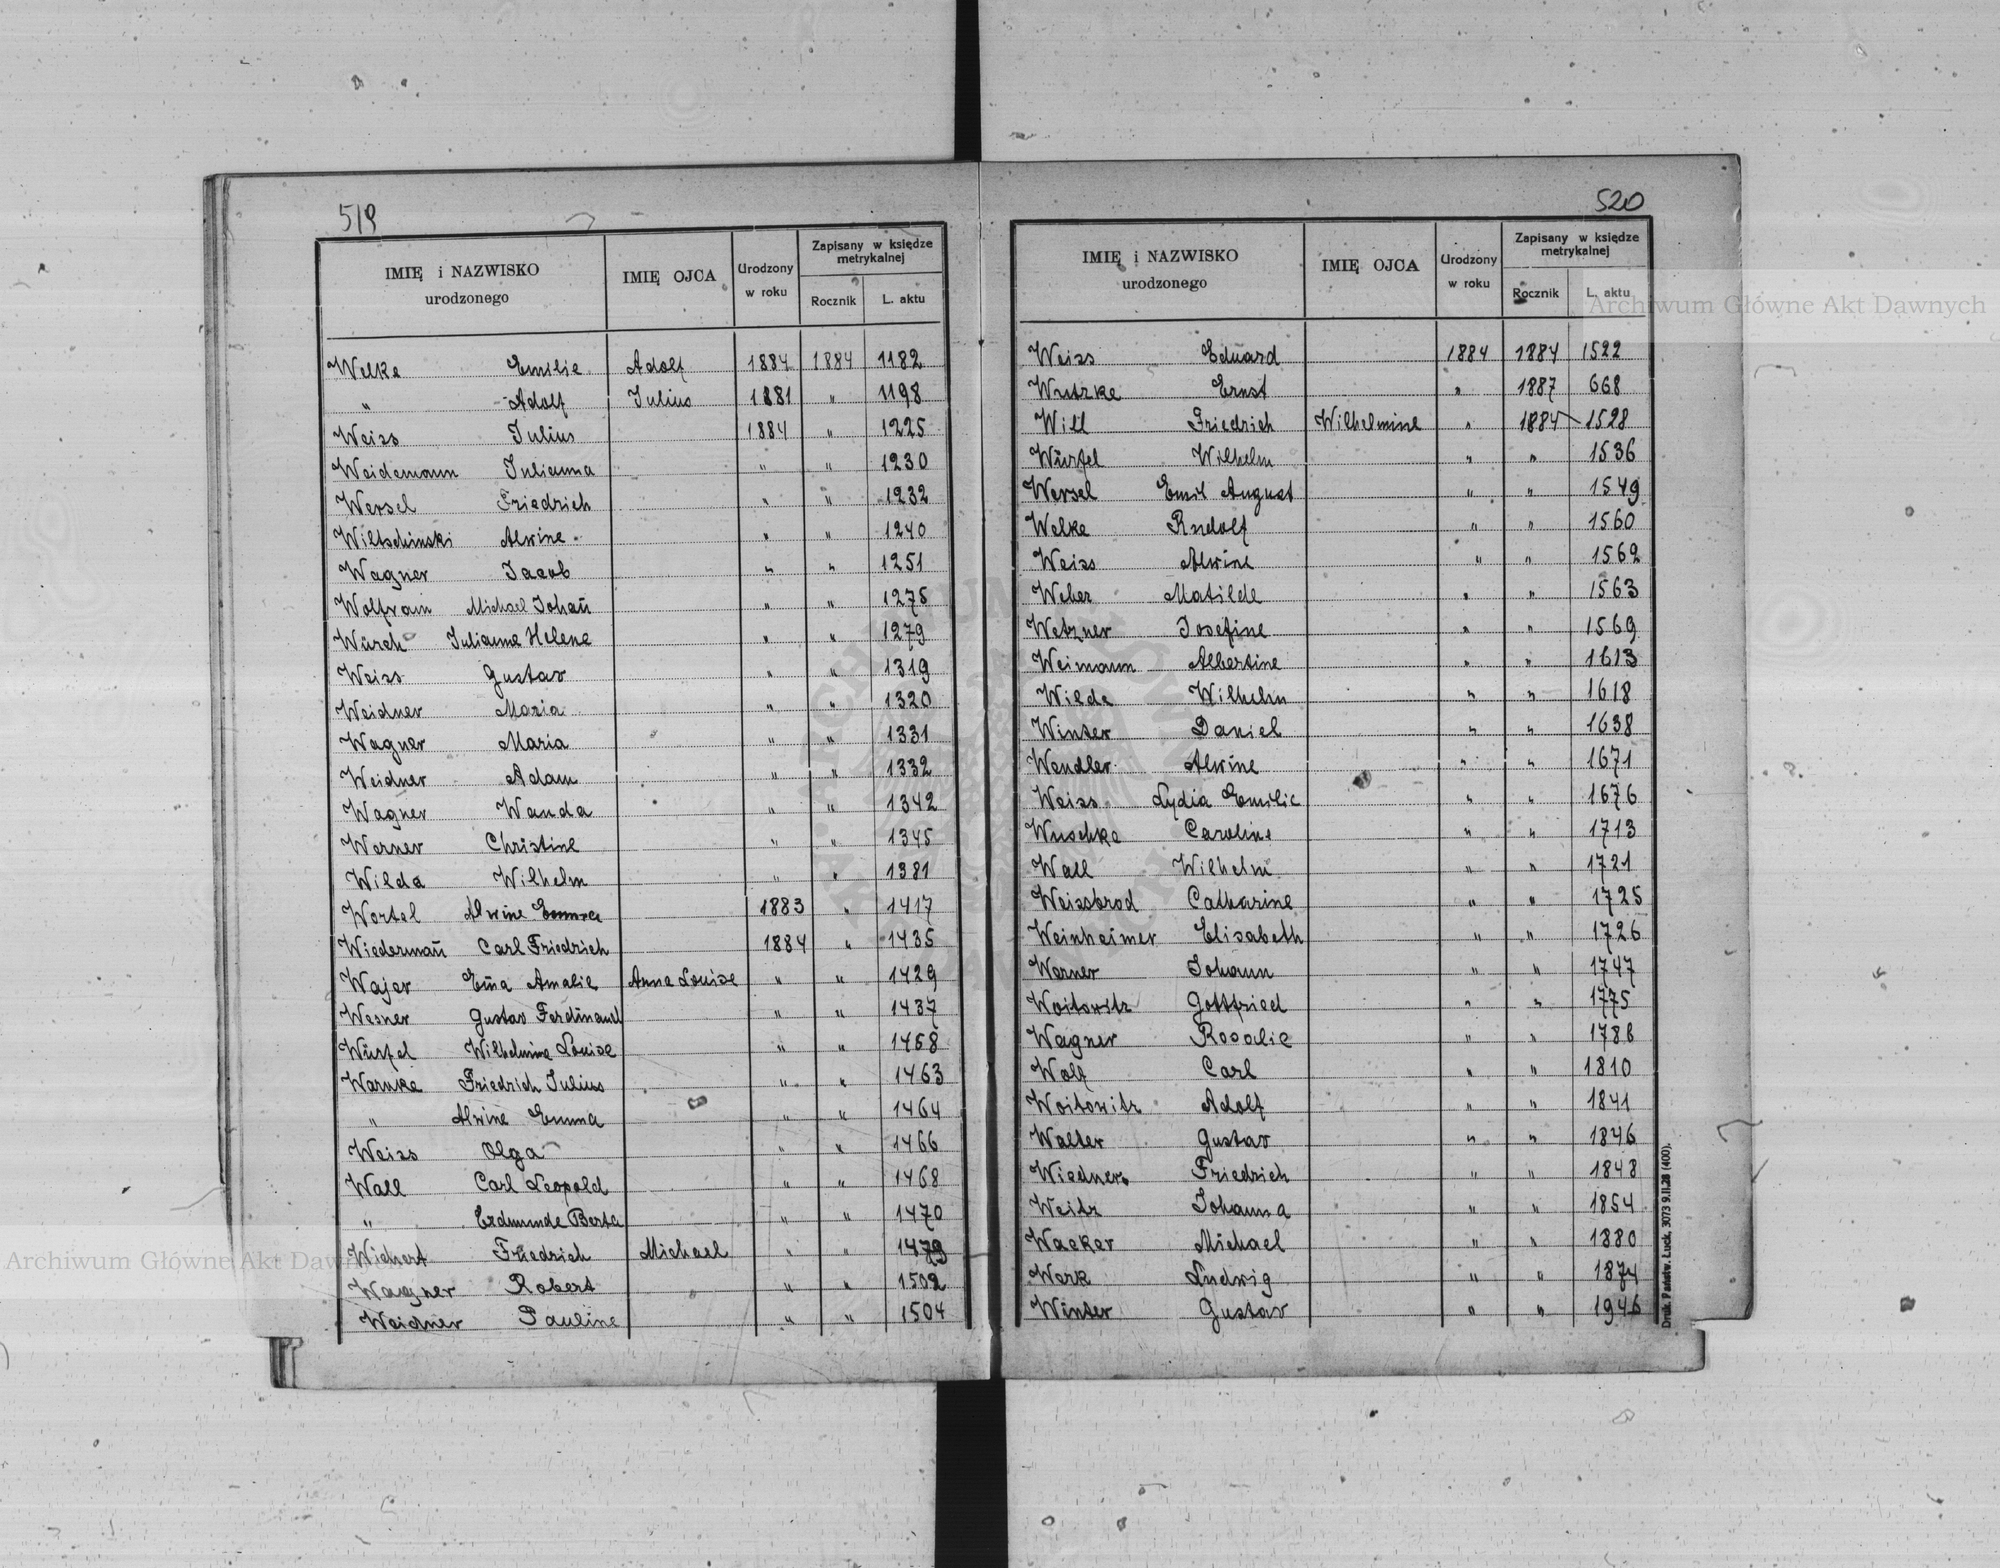 519
IMIĘ i NAZWISKO urodzonego | IMIĘ OJCA | Urodzony w roku | Zapisany w księdze metrykalnej
Rocznik | L. aktu
Welke Emilie Adolf 1884 1884 1182
" Adolf Julius 1881 " 1198
Weiss Julius 1884 " 1225
Weidemann Julianna " " 1230
Wersel Friedrich " " 1232
Wiltschinski Alwine " " 1240
Wagner Jacob " " 1251
Wolfram Michael Johañ " " 1275
Würch Julianna Helene " " 1279
Weiss Gustav " " 1319
Weidner Maria " " 1320
Wagner Maria " " 1331
Weidner Adam " " 1332
Wagner Wanda " " 1342
Werner Christine " " 1345
Wilda Wilhelm " " 1381
Wortel Alwine Emma 1883 " 1417
Wiedermañ Carl Friedrich 1884 " 1435
Wajer Em̄a Amalie Anna Louise " " 1429
Wesner Gustav Ferdinand " " 1437
Würfel Wilhelmine Louise " " 1458
Warnke Friedrich Julius " " 1463
" Alwine Emma " " 1464
Weiss Olga " " 1466
Wall Carl Leopold " " 1468
" Erdmunde Berta " " 1470
Wichert Friedrich Michael " "
Wagner Robert " " 1502
Weidner Pauline " " 1504
520
IMIĘ i NAZWISKO urodzonego | IMIĘ OJCA | Urodzony w roku | Zapisany w księdze metrykalnej
Rocznik | L. aktu
Weiss Eduard 1884 1884 1522
Wutzke Ernst " 1887 668
Will Friedrich Wilhelmine " 1884 1528
Würfel Wilhelm " " 1536
Wersel Emil August " " 1549
Welke Rudolf " " 1560
Weiss Alwine " " 1562
Weber Matilde " " 1563
Wetzner Josefine " " 1569
Weimann Albertine " " 1613
Wilde Wilhelm " " 1618
Winter Daniel " " 1638
Wendler Alwine " " 1671
Weiss Lydia Emilie " " 1676
Wuschke Caroline " " 1713
Wall Wilhelm " " 1721
Weissbrod Catharine " " 1725
Weinheimer Elisabeth " " 1726
Werner Johann " " 1747
Woitowitz Gottfried " " 1775
Wagner Rosalie " " 1786
Wolf Carl " " 1810
Woitowitz Adolf " " 1841
Walter Gustav " " 1846
Wiedner Friedrich " " 1848
Weitz Johanna " " 1854
Wacker Michael " " 1880
Werk Ludwig " " 1874
Winter Gustav " " 1946
Druk. Państw. Łuck. 3073 9.II.28 (400).
Archiwum Główne Akt Dawnych
Archiwum Główne Akt Dawnych